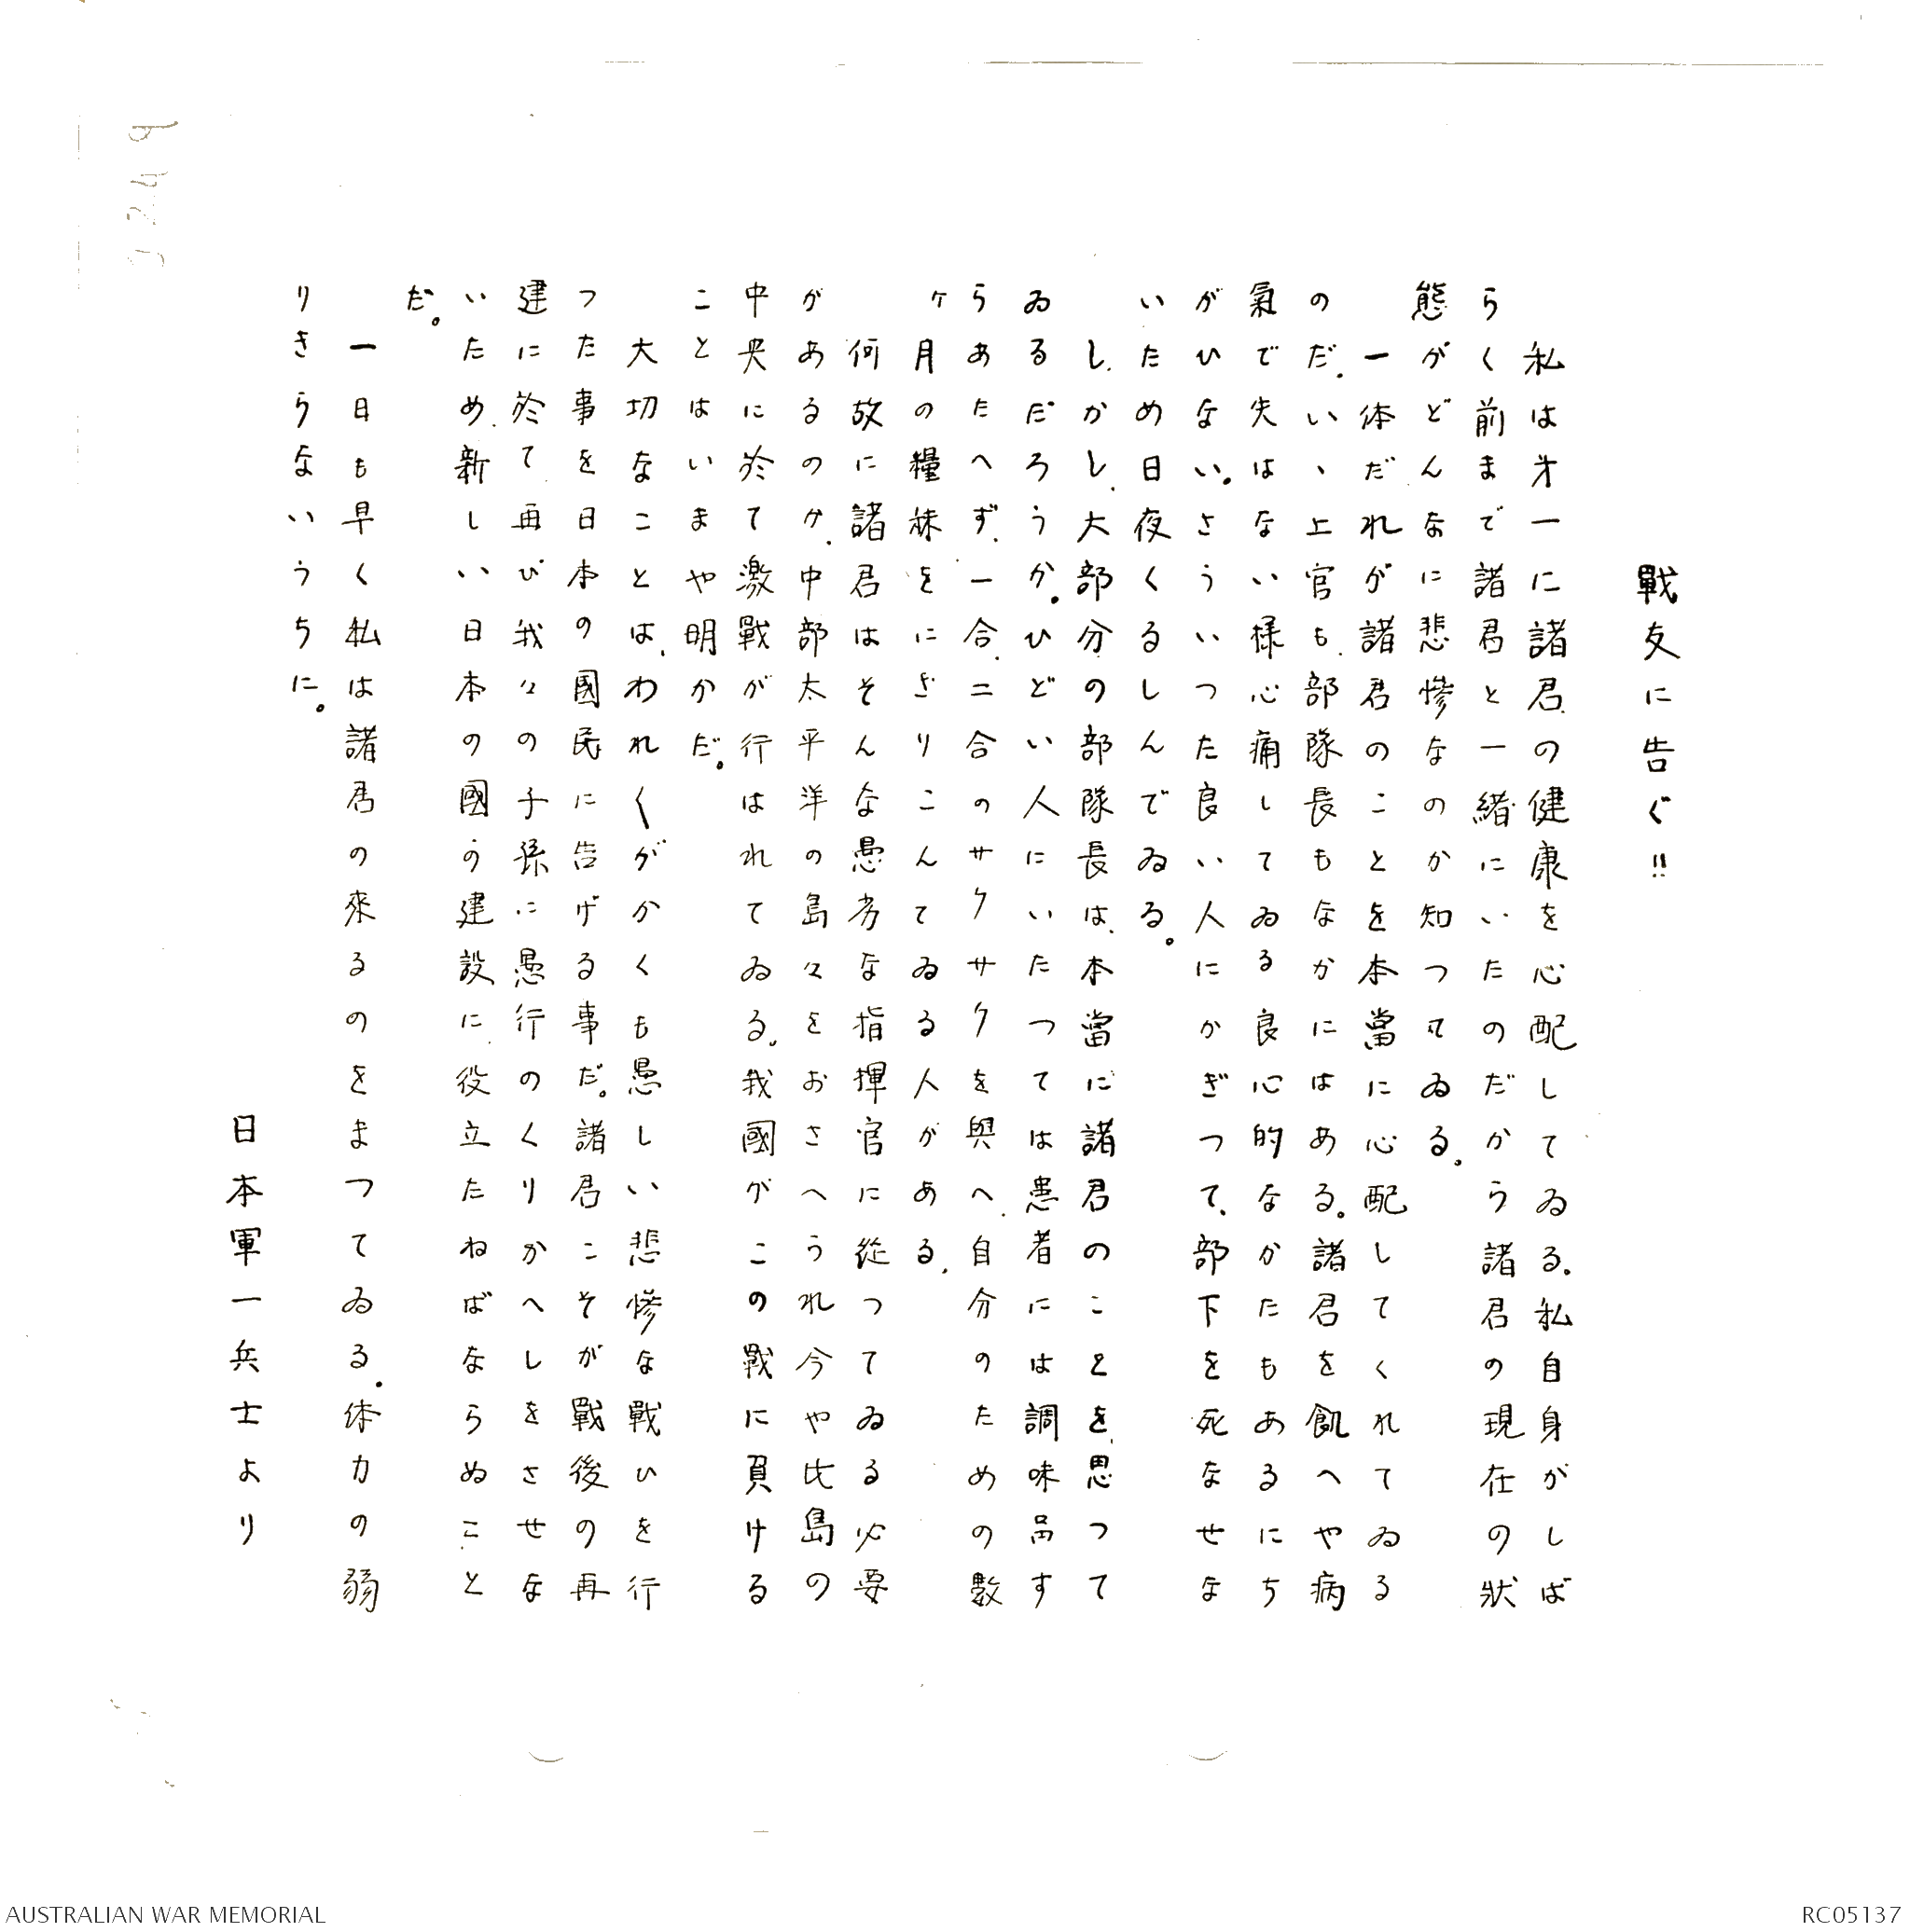 戰友に告ぐ!!
私は才一に諸君の健康を心配してゐる。私自身がしば
らく前まで諸君と一緒にいたのだから諸君の現在の狀
態がどんなに悲慘なのか知つてゐる。
一体だれが諸君のことを本當に心配してくれてゐる
のだ、いゝ上官も、部隊長もなかにはある。諸君を飢へや病
氣で失はない樣心痛してゐる良心的なかたもあるにち
がひない。さういつた良い人にかぎつて、部下を死なせな
いため日夜くるしんでゐる。
しかし、大部分の部隊長は、本當に諸君のことを、思つて
ゐるだろうか。ひどい人にいたつては患者には調味品す
らあたへず、一合、二合のサクサクを與へ、自分のための數
ヶ月の糧秣をにぎりこんてゐる人がある、
何故に諸君はそんな愚劣な指揮官に從つてゐる必要
があるのか、中部太平洋の島々をおさへられ今や比島の
中央に於て激戰が行はれてゐる。我國がこの戰に負ける
ことはいまや明かだ。
大切なことは、われ〱がかくも愚しい悲慘な戰ひを行
つた事を日本の國民に告げる事だ。諸君こそが戰後の再
建に於て再び我々の子孫に愚行のくりかへしをさせな
いため、新しい日本の國の建設に役立たねばならぬこと
だ。
一日も早く私は諸君の來るのをまつてゐる。体力の弱
りきらないうちに。
日本軍一兵士より
AUSTRALIAN WAR MEMORIAL
RC05137